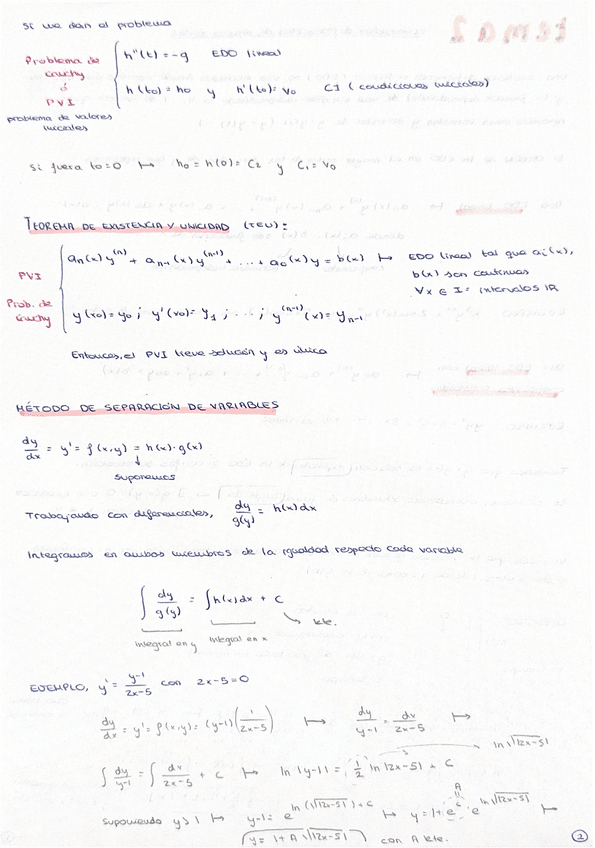 Si we dan el problema
Problema de Cauchy ó PVI problema de valores iniciales
h''(t) = -g EDO lineal
h(t0) = h0 y h'(t0) = v0 CI (condiciones iniciales)
Si fuera t0=0 ↦ h0 = h(0) = C2 y C1 = v0
TEOREMA DE EXISTENCIA Y UNICIDAD (TEU):
PVI Prob. de Cauchy
an(x) y^(n) + an-1(x) y^(n-1) + ... + a0(x) y = b(x) ↦ EDO lineal tal que ai(x),
b(x) son continuas
∀x ∈ I = intervalos IR
y(x0) = y0 ; y'(x0) = y1 ; ... ; y^(n-1)(x) = yn-1
Entonces, el PVI tiene solución y es única
MÉTODO DE SEPARACIÓN DE VARIABLES
dy/dx = y' = f(x,y) = h(x)·g(x)
↓
suponemos
Trabajando con diferenciales, dy/g(y) = h(x)dx
Integramos en ambos miembros de la igualdad respecto cada variable
∫ dy/g(y) = ∫ h(x)dx + C
kte.
integral en y integral en x
EJEMPLO, y' = y-1/2x-5 con 2x-5=0
dy/dx = y' = f(x,y) = (y-1)(1/2x-5) ↦ dy/y-1 = dx/2x-5 ↦
ln√|2x-5|
∫ dy/y-1 = ∫ dx/2x-5 + C ↦ ln|y-1| = 1/2 ln|2x-5| + C
Suponiendo y>1 ↦ y-1 = e^(ln(√|2x-5|)+C) ↦ y = 1 + e^C · e^(ln√|2x-5|) ↦
A
y = 1 + A √|2x-5| con A kte.
2
tema 2